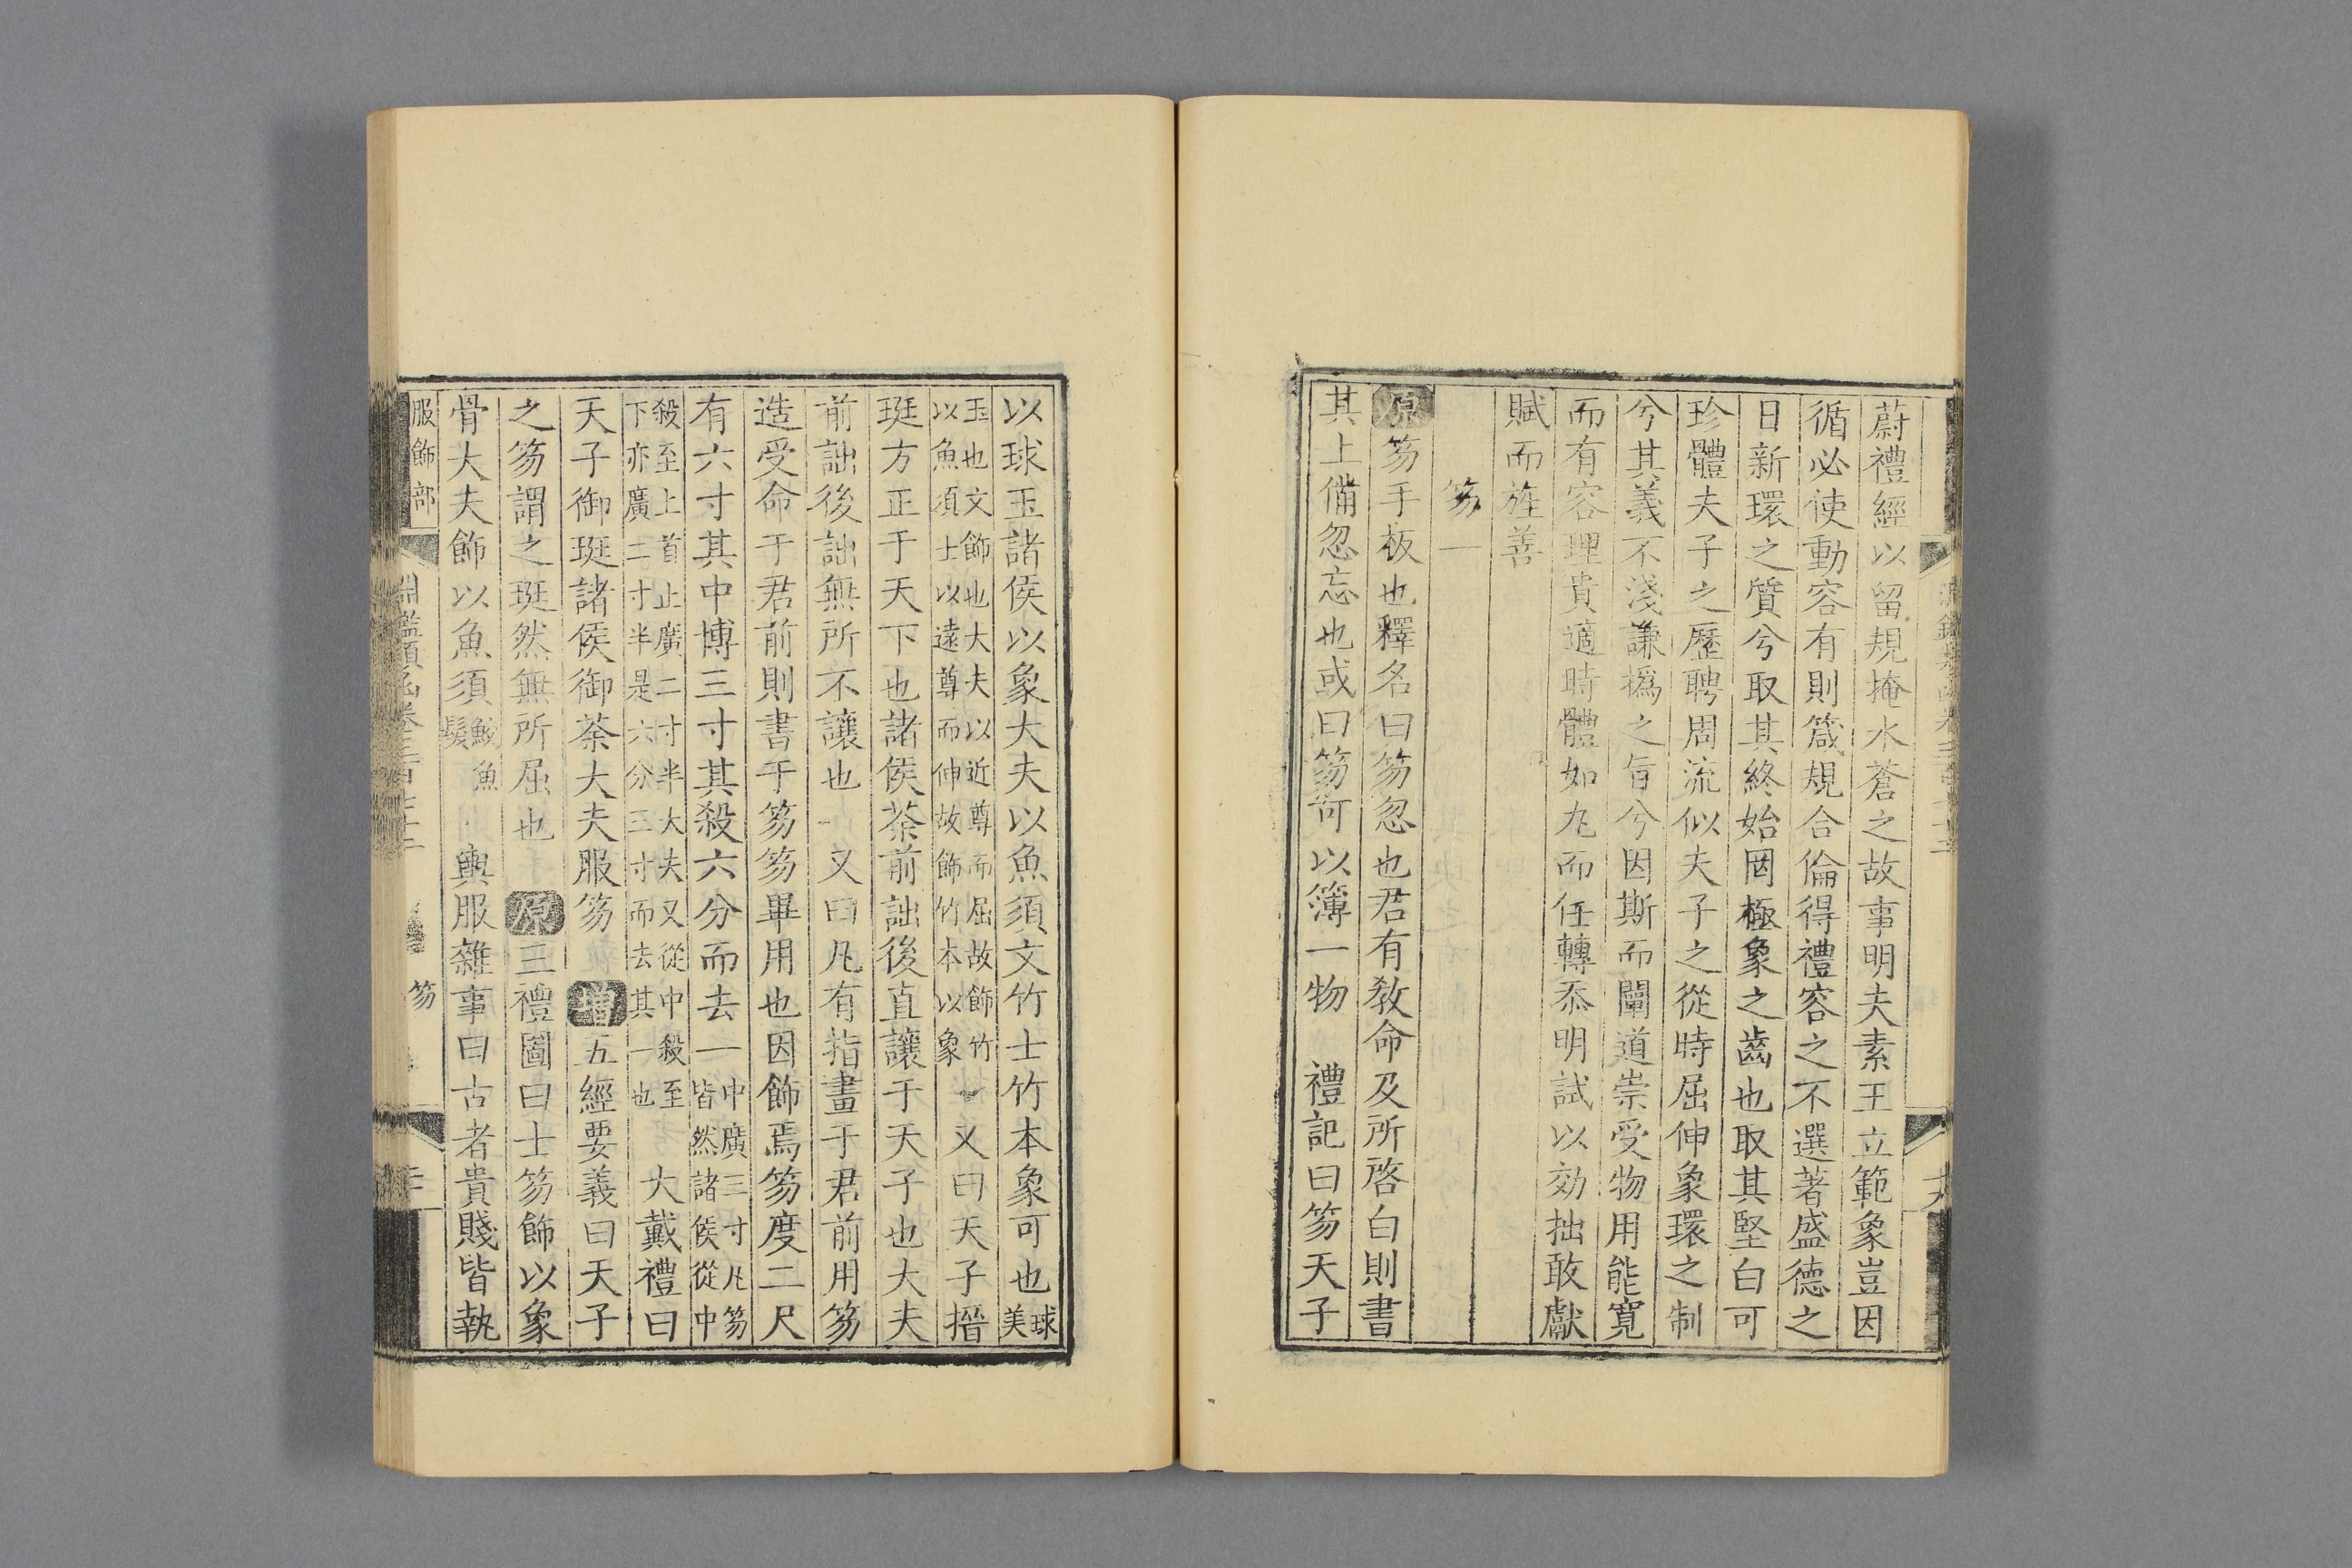 蔚禮經以留規掩水蒼之故事明夫素王立範象豈因
循必使動容有則箴規合倫得禮容之不選著盛德之
日新環之質兮取其終始罔極象之齒也取其堅白可
珍體夫子之歷聘周流似夫子之從時屈伸象環之制
兮其義不淺謙撝之旨兮因斯而闡道崇受物用能寬
而有容理貴適時體如丸而任轉忝明試以効拙敢獻
賦而旌善
笏一
原笏手板也釋名曰笏忽也君有敎命及所啓白則書
其上備忽忘也或曰笏可以簿一物 禮記曰笏天子
以球玉諸侯以象大夫以魚須文竹士竹本象可也球美
玉也文飾也大夫以近尊而屈故飾竹以魚須士以遠尊而伸故飾竹本以象 又曰天子搢
珽方正于天下也諸侯荼前詘後直讓于天子也大夫
前詘後詘無所不讓也 又曰凡有指畫于君前用笏
造受命于君前則書于笏笏畢用也因飾焉笏度二尺
有六寸其中博三寸其殺六分而去一中廣三寸凡笏皆然諸侯從中
殺至上首止廣二寸半大夫又從中殺至下亦廣二寸半是六分三寸而去其一也 大戴禮曰
天子御珽諸侯御荼大夫服笏 增五經要義曰天子
之笏謂之珽然無所屈也 原三禮圖曰士笏飾以象
骨大夫飾以魚須鮫魚鬚 輿服雜事曰古者貴賤皆執
服飾部
笏